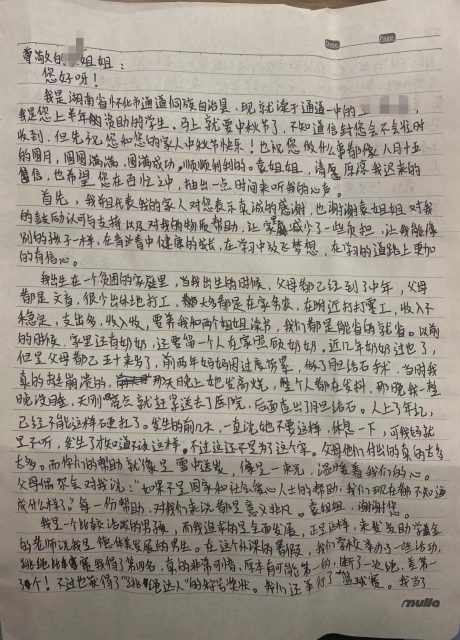 Date: Page:
尊敬的 姐姐:
您好呀!
我是湖南省怀化市通道侗族自治县,现就读于通道一中的
我是您上半年的资助的学生。马上就要中秋节了,不知道信封您会不会及时
收到,但先祝您和您的家人中秋节快乐!也祝您做什么事都像八月十五
的圆月,圆圆满满,圆满成功,顺顺利利的。袁姐姐,请原谅我迟来的
信,也希望您在百忙之中,抽出一点时间来听我的心声。
首先,我想代表我的家人对您表示真诚的感谢,也谢谢袁姐姐对我
的鼓励认可与支持以及对我的物质帮助,让家庭减少了一些负担,让我能像
别的孩子一样,在青春中健康的成长,在学习中放飞梦想,在学习的道路上更加
的有信心。
我出生在一个贫困的家庭里,当我出生的时候,父母都已经到了中年,父母
都是文盲,很少出外地打工,大多都是在家务农,在附近打打零工,收入不
稳定,支出多,收入少,要养我和两个姐姐读书,我们都是能省的就省。以前
的时候,家里还有奶奶,还要留一个人在家照顾奶奶,近几年奶奶过世了,
但是父母都已五十来岁了,前两年妈妈因过度劳累,做了胆结石手术,当时我
真的挺崩溃的,那天晚上她发高烧,整个人都在发抖,那晚我一整
晚没睡,天刚亮点就赶紧送去了医院,后面查出了胆结石。人上了年纪,
已经不能这样硬扛了。发生的前几天,一直说她不要这样,休息一下,可我妈就
是不听,发生了才知道不该这样。不过这还不是为了这个家。父母他们付出的真的太多
太多。而你们的帮助就像是雪中送炭,像是一束光,温暖着我们的心。
父母偶尔会对我说:“如果不是国家和社会爱心人士的帮助,我们现在都不知道
成什么样了。”每一份帮助,对我们来说都是意义非凡。袁姐姐,谢谢您。
我是一个比较活泼的男孩,而我追求的是全面发展,正是这样,来发
的老师说我是德体美发展的男生。在这个补课的暑假,我们学校举办了一些活动,
跳绳比赛我取得了第四名,真的非常可惜,原本有可能第一的,断了一次绳,差第一
个!不过也获得了“跳绳达人”的称号奖状。我们还举行了“篮球赛”。我当了
mulla